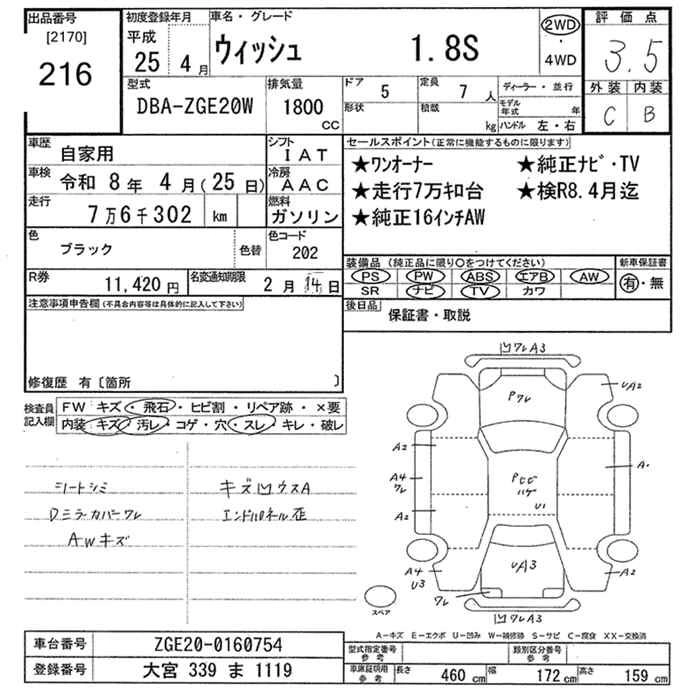 出品番号
[2170]
216
初度登録年月
平成
25 4月
車名・グレード
ウィッシュ 1.8S
2WD
・
4WD
評価点
3.5
外装 内装
C B
型式
DBA-ZGE20W
排気量
1800
CC
ドア 5
形状
定員 7 人
積載 kg
ディーラー・並行
モデル年式 年
ハンドル 左・右
車歴 自家用
シフト IAT
車検 令和 8年 4月(25日)
冷房 AAC
走行 7万6千302 km
燃料 ガソリン
色 ブラック 色替
色コード 202
R券 11,420円
名変通知期限 2月14日
セールスポイント(正常に機能するものに限ります)
★ワンオーナー ★純正ナビ・TV
★走行7万キロ台 ★検R8.4月迄
★純正16インチAW
装備品 (純正品に限り○をつけてください)
PS PW ABS エアB AW
SR ナビ TV カワ
新車保証書
有・無
後日品 保証書・取説
注意事項申告欄(不具合内容等は具体的に記入して下さい)
修復歴 有〔箇所 〕
検査員記入欄
FW キズ・飛石・ヒビ割・リペア跡・×要
内装 キズ・汚レ・コゲ・穴・スレ・キレ・破レ
シートシミ
Dミラーカバーワレ
AWキズ
キズ凹ウスA
エンドパネル歪
凹ワレA3
Pワレ
UA2
A2
A4
ワレ
A2
Pヒビ
ハゲ
U1
A4
U3
UA3
ワレ
A2
凹ワレA3
スペア
A-キズ E-エクボ U-凹み W-補修跡 S-サビ C-腐食 XX-交換済
車台番号 ZGE20-0160754
登録番号 大宮 339 ま 1119
型式指定番号
参考
類別区分番号
参考
車庫証明用
参考
長さ 460cm 幅 172cm 高さ 159cm